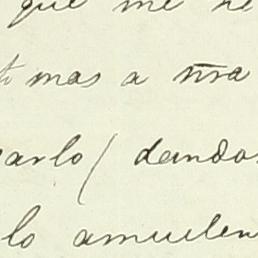 que me
mas a n̄ra
arlo ( dando
lo amuelen